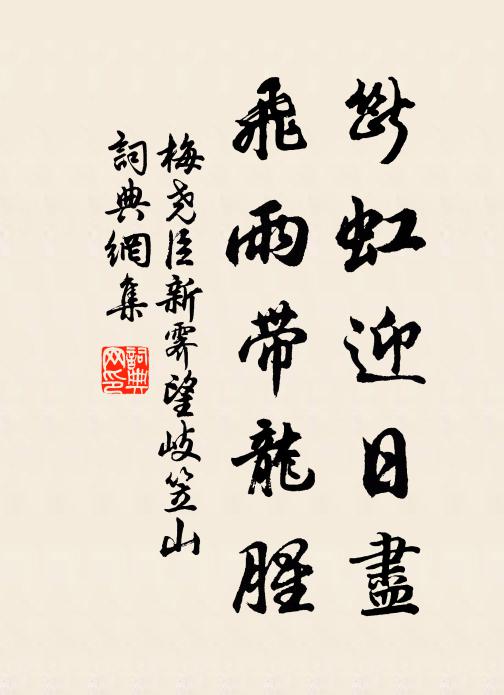 斷虹迎日盡
飛雨帶龍腥
梅尧臣新霽望岐笠山
詞典網集
詞典網印